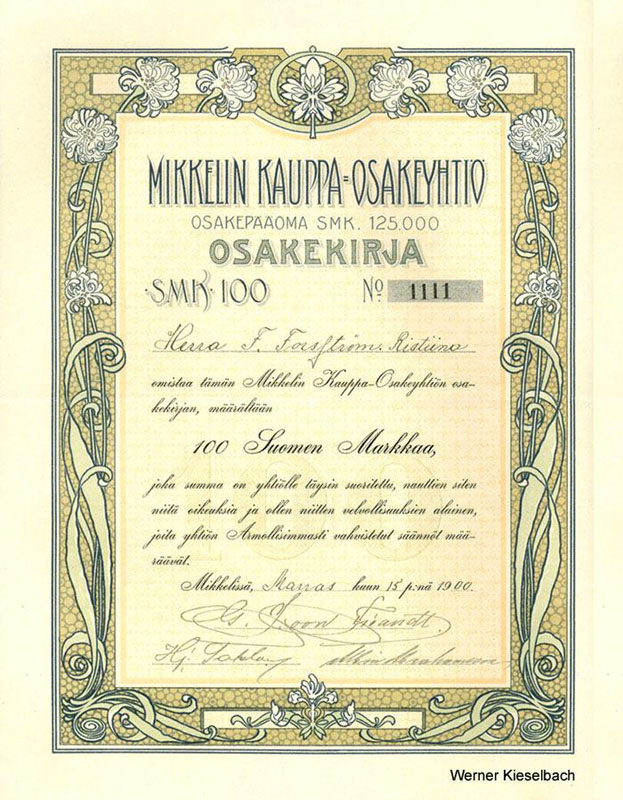 MIKKELIN KAUPPA=OSAKEYHTIÖ
OSAKEPÄÄOMA SMK. 125.000
OSAKEKIRJA
·SMK· 100 No 1111
Herra F. Forsström. Ristiina
omistaa tämän Mikkelin Kauppa-Osakeyhtiön osa-
kekirjan, määrältään
100 Suomen Markkaa,
joka summa on yhtiölle täysin suoritettu, nauttien siten
niitä oikeuksia ja ollen niitten velvollisuuksien alainen,
joita yhtiön Armollisimmasti vahvistetut säännöt mää-
räävät.
Mikkelissä, Marras kuun 15 p:nä 1900.
Werner Kieselbach